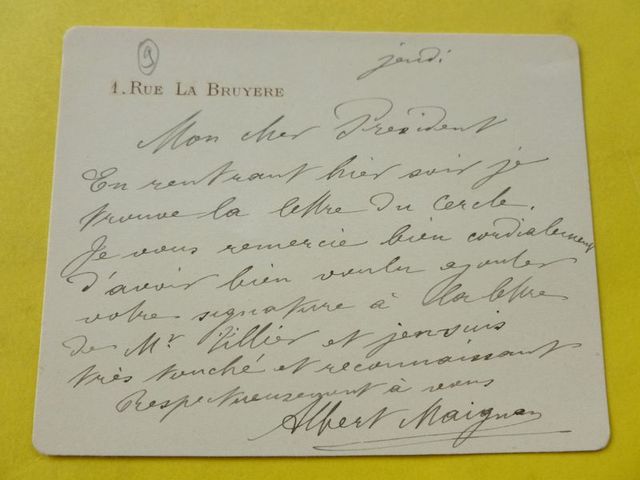 9
jeudi
1. RUE LA BRUYERE
Mon cher Président
En rentrant hier soir je
trouve la lettre du cercle.
Je vous remercie bien cordialement
d'avoir bien voulu ajouter
votre signature à la lettre
de Mr Tillier et j'en suis
très touché et reconnaissant
Respectueusement à vous
Albert Maignan